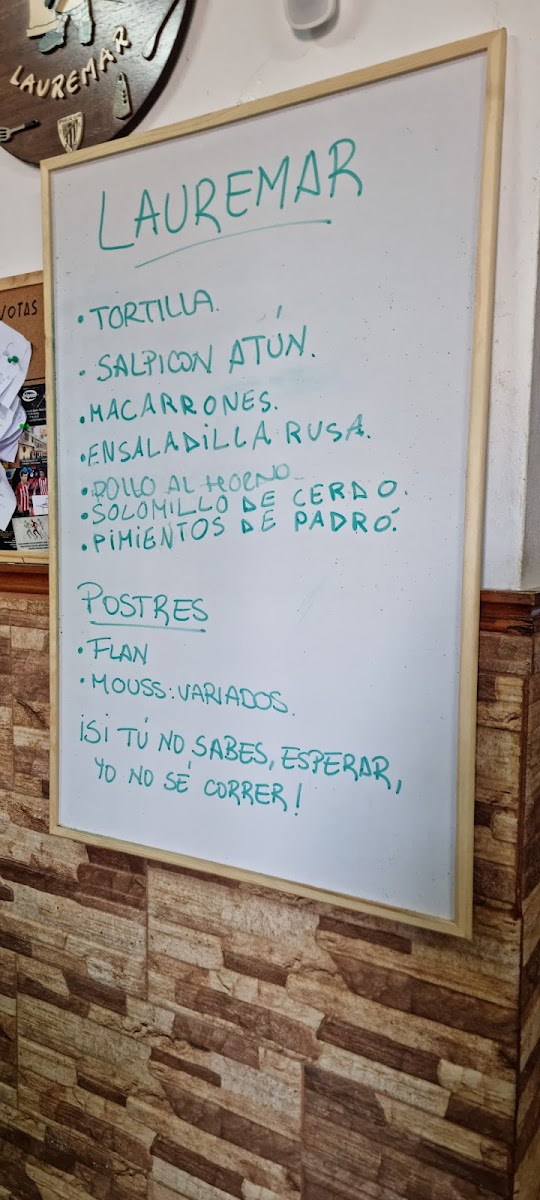 LAUREMAR
VOTAS
LAUREMAR
• TORTILLA.
• SALPICON ATÚN.
• MACARRONES.
• ENSALADILLA RUSA.
• POLLO AL HORNO
• SOLOMILLO DE CERDO.
• PIMIENTOS DE PADRÓ.
POSTRES
• FLAN
• MOUSS: VARIADOS.
¡SI TÚ NO SABES, ESPERAR,
YO NO SÉ CORRER!